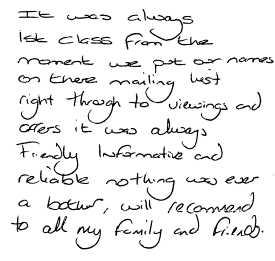 It was always
1st class from the
moment we put our names
on there mailing list
right through to viewings and
offers it was always
Friendly Informative and
reliable nothing was ever
a bother, will recommend
to all my family and friends.